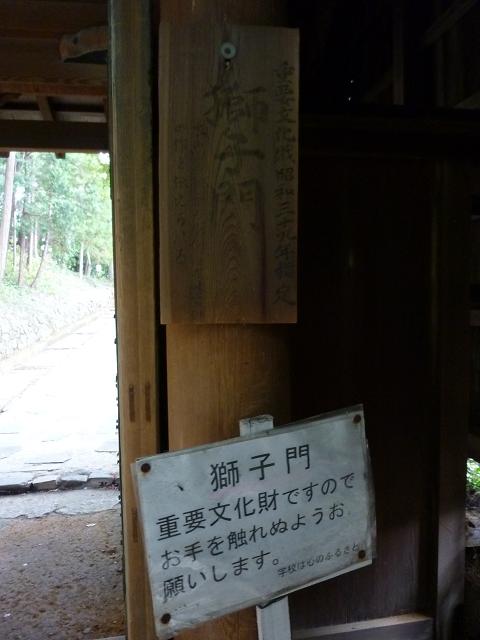 重要文化財 昭和三十九年指定
獅子門
獅子門
重要文化財ですので
お手を触れぬようお
願いします。
学校は心のふるさと